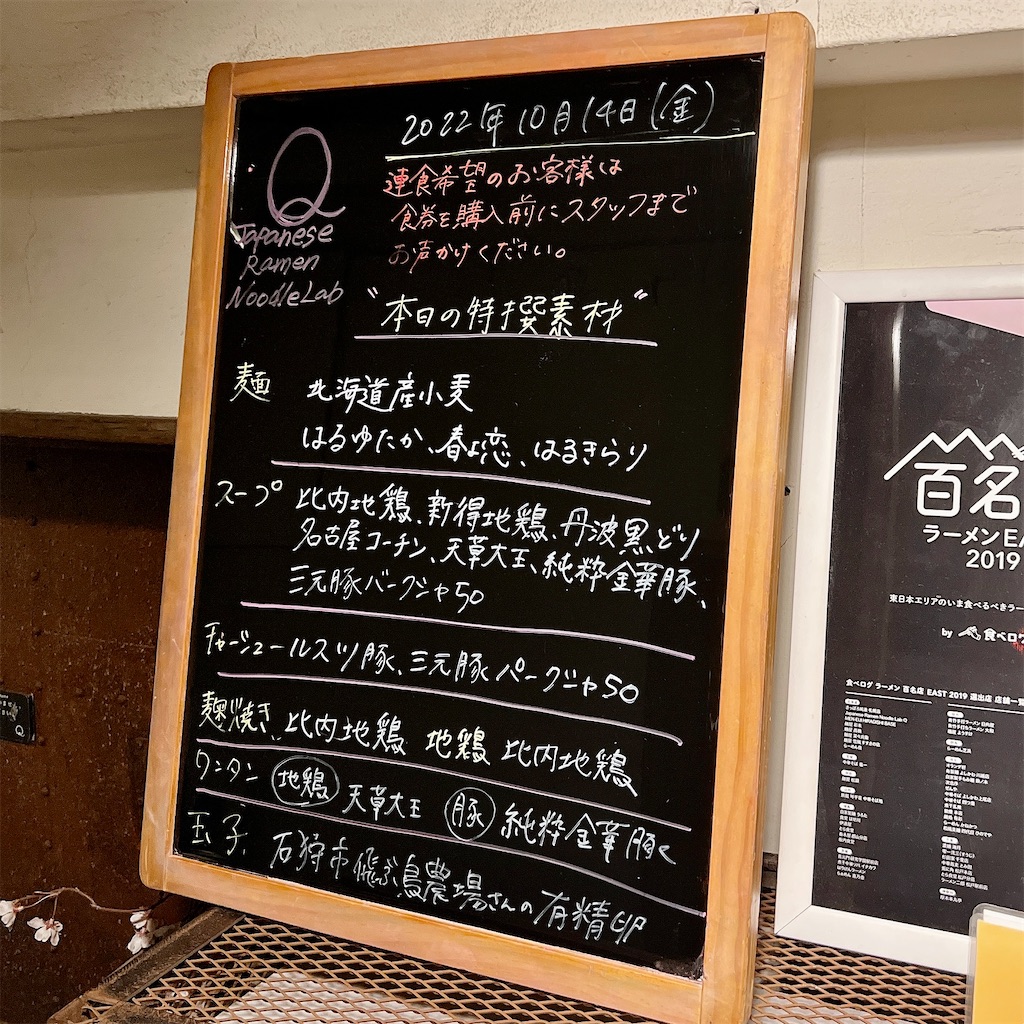 2022年10月14日(金)
Q
Japanese
Ramen
NoodleLab
連食希望のお客様は
食券を購入前にスタッフまで
お声かけください。
"本日の特撰素材"
麺 北海道産小麦
はるゆたか、春よ恋、はるきらり
スープ 比内地鶏、新得地鶏、丹波黒どり
名古屋コーチン、天草大王、純粋金華豚、
三元豚バークシャ50
チャーシュー ルスツ豚、三元豚バークシャ50
麹焼き、比内地鶏 地鶏 比内地鶏
ワンタン 地鶏 天草大王 豚 純粋金華豚
玉子、石狩市飛ぶ鳥農場さんの有精卵
百名
ラーメン EA
2019
東日本エリアのいま食べるべきラー
by 食べログ
食べログ ラーメン 百名店 EAST 2019 選出店 店舗一覧